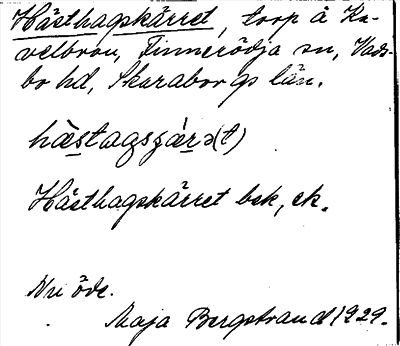 Hästhagskärret, torp å Ka-
velbron, Finnerödja sn, Vads-
bo hd, Skaraborgs län.
hæ̀stagsɟár̲ə(t)
Hästhagskärret bsk, ek.
Nu öde.
Maja Bergstrand 1929.